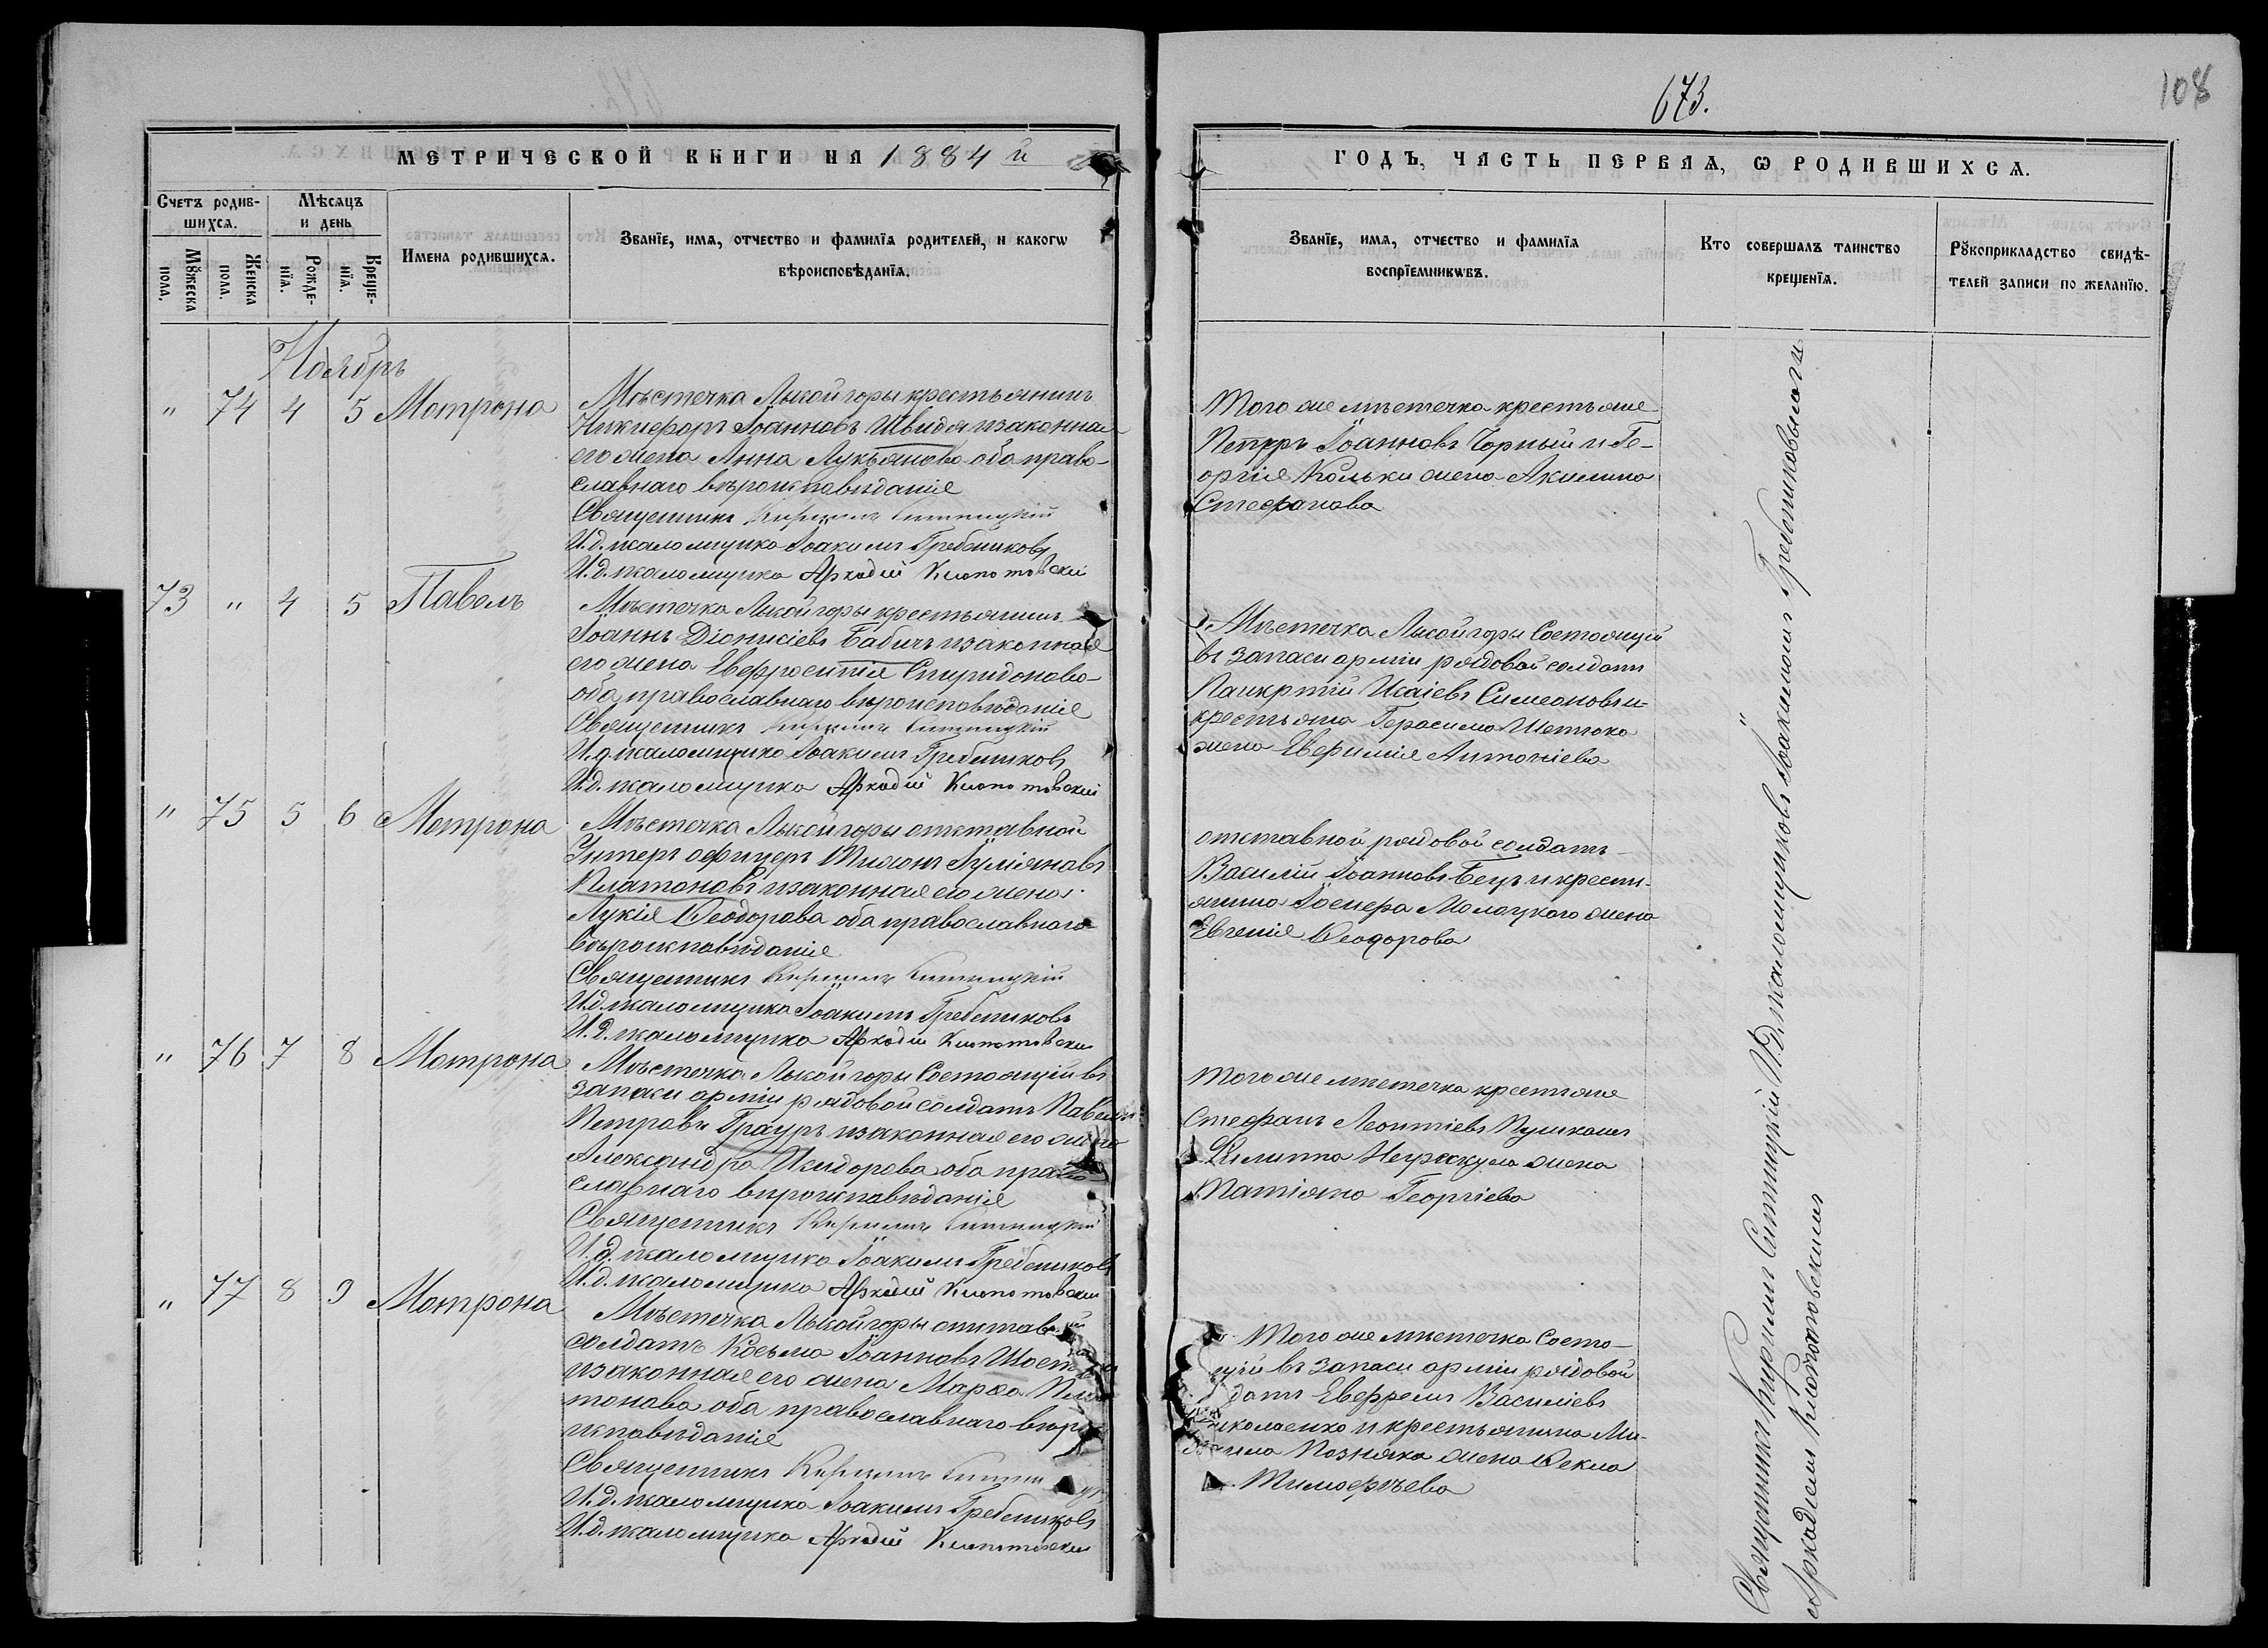 673.
108
МЕТРИЧЕСКОЙ КНИГИ НА 1884 й
ГОДЪ, ЧАСТЬ ПЕРВАЯ, Ѡ РОДИВШИХСѦ.
Счетъ родив-
шихсѧ.
Мѣсяцъ
и день
Мꙋжеска
пола.
Женска
пола.
Рожде-
нїѧ.
Креще-
нїѧ.
Имена родившихсѧ.
Званїе, имѧ, отчество и фамилїѧ родителей, и какогѡ
вѣроисповѣданїѧ.
Званїе, имѧ, отчество и фамилїѧ
воспрїемникѡвъ.
Кто совершалъ таинство
крещенїѧ.
Рꙋкоприкладство свидѣ-
телей записи по желанїю.
Ноябрь
" 74 4 5 Мотрона
Мѣстечка Лысой горы крестьянинъ
Никифоръ Іоанновъ Швидя изаконная
его жена Анна Лукъянова оба право-
славнаго вѣроисповѣданія
Священникъ Кириллъ Синницкій
И.д. псаломщика Іоакимъ Гребениковъ
И.д. псаломщика Аркадій Клопотовскій
Того же мѣстечка крестьяне
Петръ Іоанновъ Чорный и Ге-
оргія Кольки жена Акилина
Стефанова
73 " 4 5 Павелъ
Мѣстечка Лысой горы крестьянинъ
Іоаннъ Діонисіевъ Бабичъ изаконная
его жена Евфросинія Спиридонова
оба православнаго вѣроисповѣданія
Священникъ Кириллъ Синницкій
И.д. псаломщика Іоакимъ Гребениковъ
И.д. псаломщика Аркадій Клопотовскій
Мѣстечка Лысой горы Состоящій
въ запаси арміи рядовой солдатъ
Панкртій Исаіевъ Симеоновъ и
крестьяна Герасима
жена Евфимія Антоніева
" 75 5 6 Мотрона
Мѣстечка Лысой горы отставной
Унтеръ офицеръ Тихонъ Іуліановъ
Платоновъ изаконная его жена
Лукія Ѳеодорова оба православнаго
вѣроисповѣданія
Священникъ Кириллъ Синницкій
И.д. псаломщика Іоакимъ Гребениковъ
И.д. псаломщика Аркадій Клопотовскій
отставной рядовой солдатъ
Василій Іоанновъ Бецъ и крест-
янина Іосифа Молоцкого жена
Евгенія Ѳеодорова
" 76 7 8 Мотрона
Мѣстечка Лысой горы Состоящій въ
запаси арміи рядовой солдатъ Павелъ
Петровъ Грауръ изаконная его жена
Александра Исидорова оба право
славнаго вѣроисповѣданія
Священникъ Кириллъ Синницкій
И.д. псаломщика Іоакимъ Гребениковъ
И.д. псаломщика Аркадій Клопотовскій
Того же мѣстечка крестьяне
Стефанъ Леонтіевъ Пушкашъ
Филиппа жена
Татіяна Георгіева
" 77 8 9 Мотрона
Мѣстечка Лысой горы отставной
солдатъ Косьма Іоанновъ
изаконная его жена Марѳа Пла
тонова оба православнаго вѣро
исповѣданія
Священникъ Кириллъ
И.д. псаломщика Іоакимъ Гребениковъ
И.д. псаломщика Аркадій Клопотовскій
Того же мѣстечка Состо-
щій въ запаси арміи рядовой
датъ Евфремъ Василіевъ
иколаенко и крестьянина Ми-
Позняка жена Ѳекла
Тимофѣева
Священникъ Кириллъ Синницкій И.д. псаломщиковъ Іоакимомъ Гребениковымъ и
Аркадіемъ Клопотовскимъ